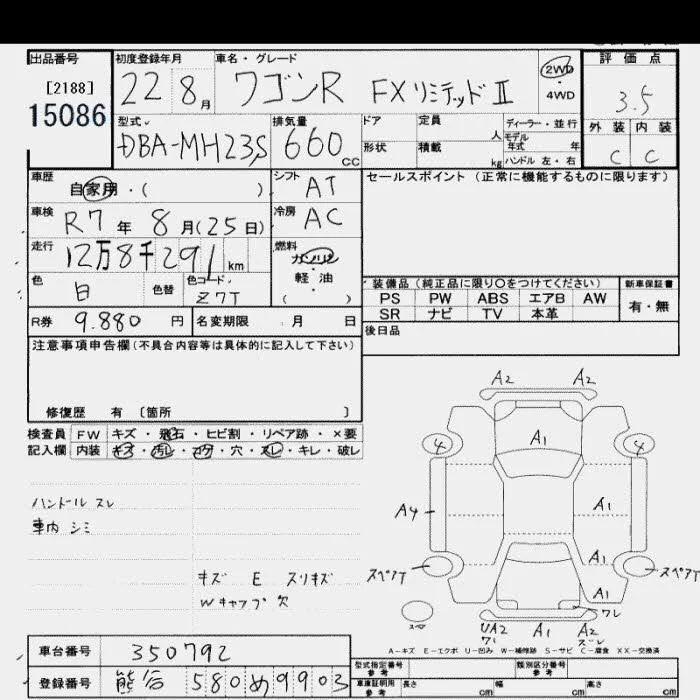 出品番号 初度登録年月 車名・グレード 2WD 評価点
[2188] 22 8月 ワゴンR FXリミテッドⅡ 4WD 3.5
15086 型式 排気量 ドア 定員 人 ディーラー・並行 外装 内装
DBA-MH23S 660cc 形状 積載 kg モデル年式 年 ハンドル 左・右 C C
車歴 自家用・( ) シフト AT セールスポイント (正常に機能するものに限ります)
車検 R7年 8月(25日) 冷房 AC
走行 12万8千291km 燃料 ガソリン
軽油
( )
色 白 色替 色コード Z7T
装備品(純正品に限り○をつけてください) 新車保証書
PS PW ABS エアB AW 有・無
SR ナビ TV 本革
R券 9.880円 名変期限 月 日 後日品
注意事項申告欄(不具合内容等は具体的に記入して下さい)
修復歴 有 〔箇所 〕
検査員 FW キズ・飛石・ヒビ割・リペア跡・×要
記入欄 内装 キズ・汚レ・コゲ・穴・スレ・キレ・破レ
A2 A2
4 A1 4
ハンドル スレ A4 A1
車内 シミ
A1
スペアT スペアT
キズ E スリキズ A1
Wキャップ欠 ワレ
A1 A2
ワレ
A-キズ E-エクボ U-凹み W-補修跡 S-サビ C-腐食 XX-交換済
車台番号 350792 型式指定番号 参考 類別区分番号 参考
登録番号 熊谷 580 め 9903 車庫証明用 参考 長さ cm 幅 cm 高さ cm